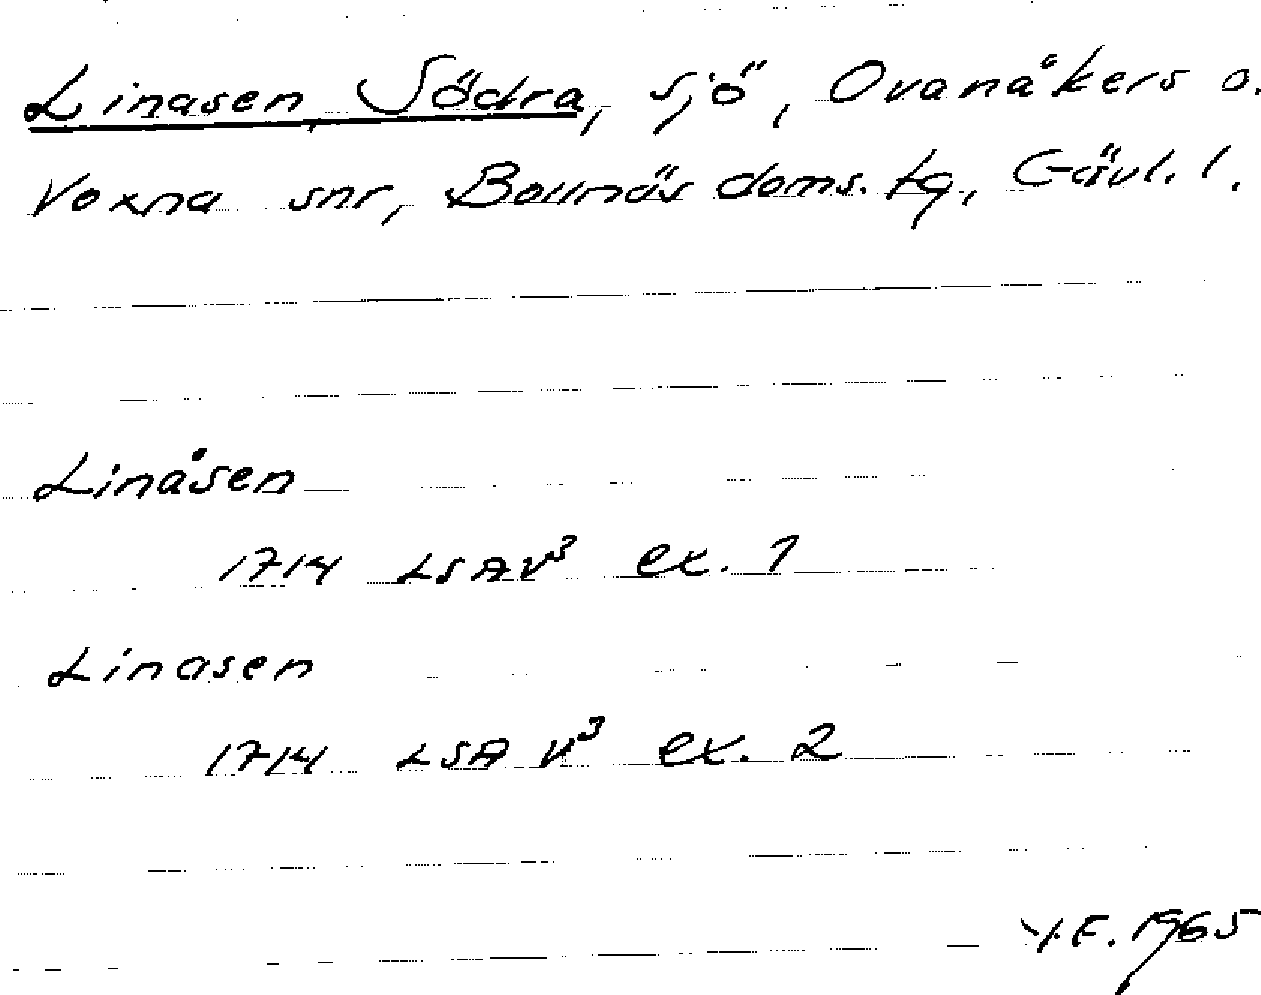 Linasen, Södra, sjö, Ovanåkers o.
Voxna snr, Bollnäs doms. tg, Gävl. l.
Linåsen
1714 LSA V³ ex. 1
Linasen
1714 LSA V³ ex. 2
Y.E. 1965